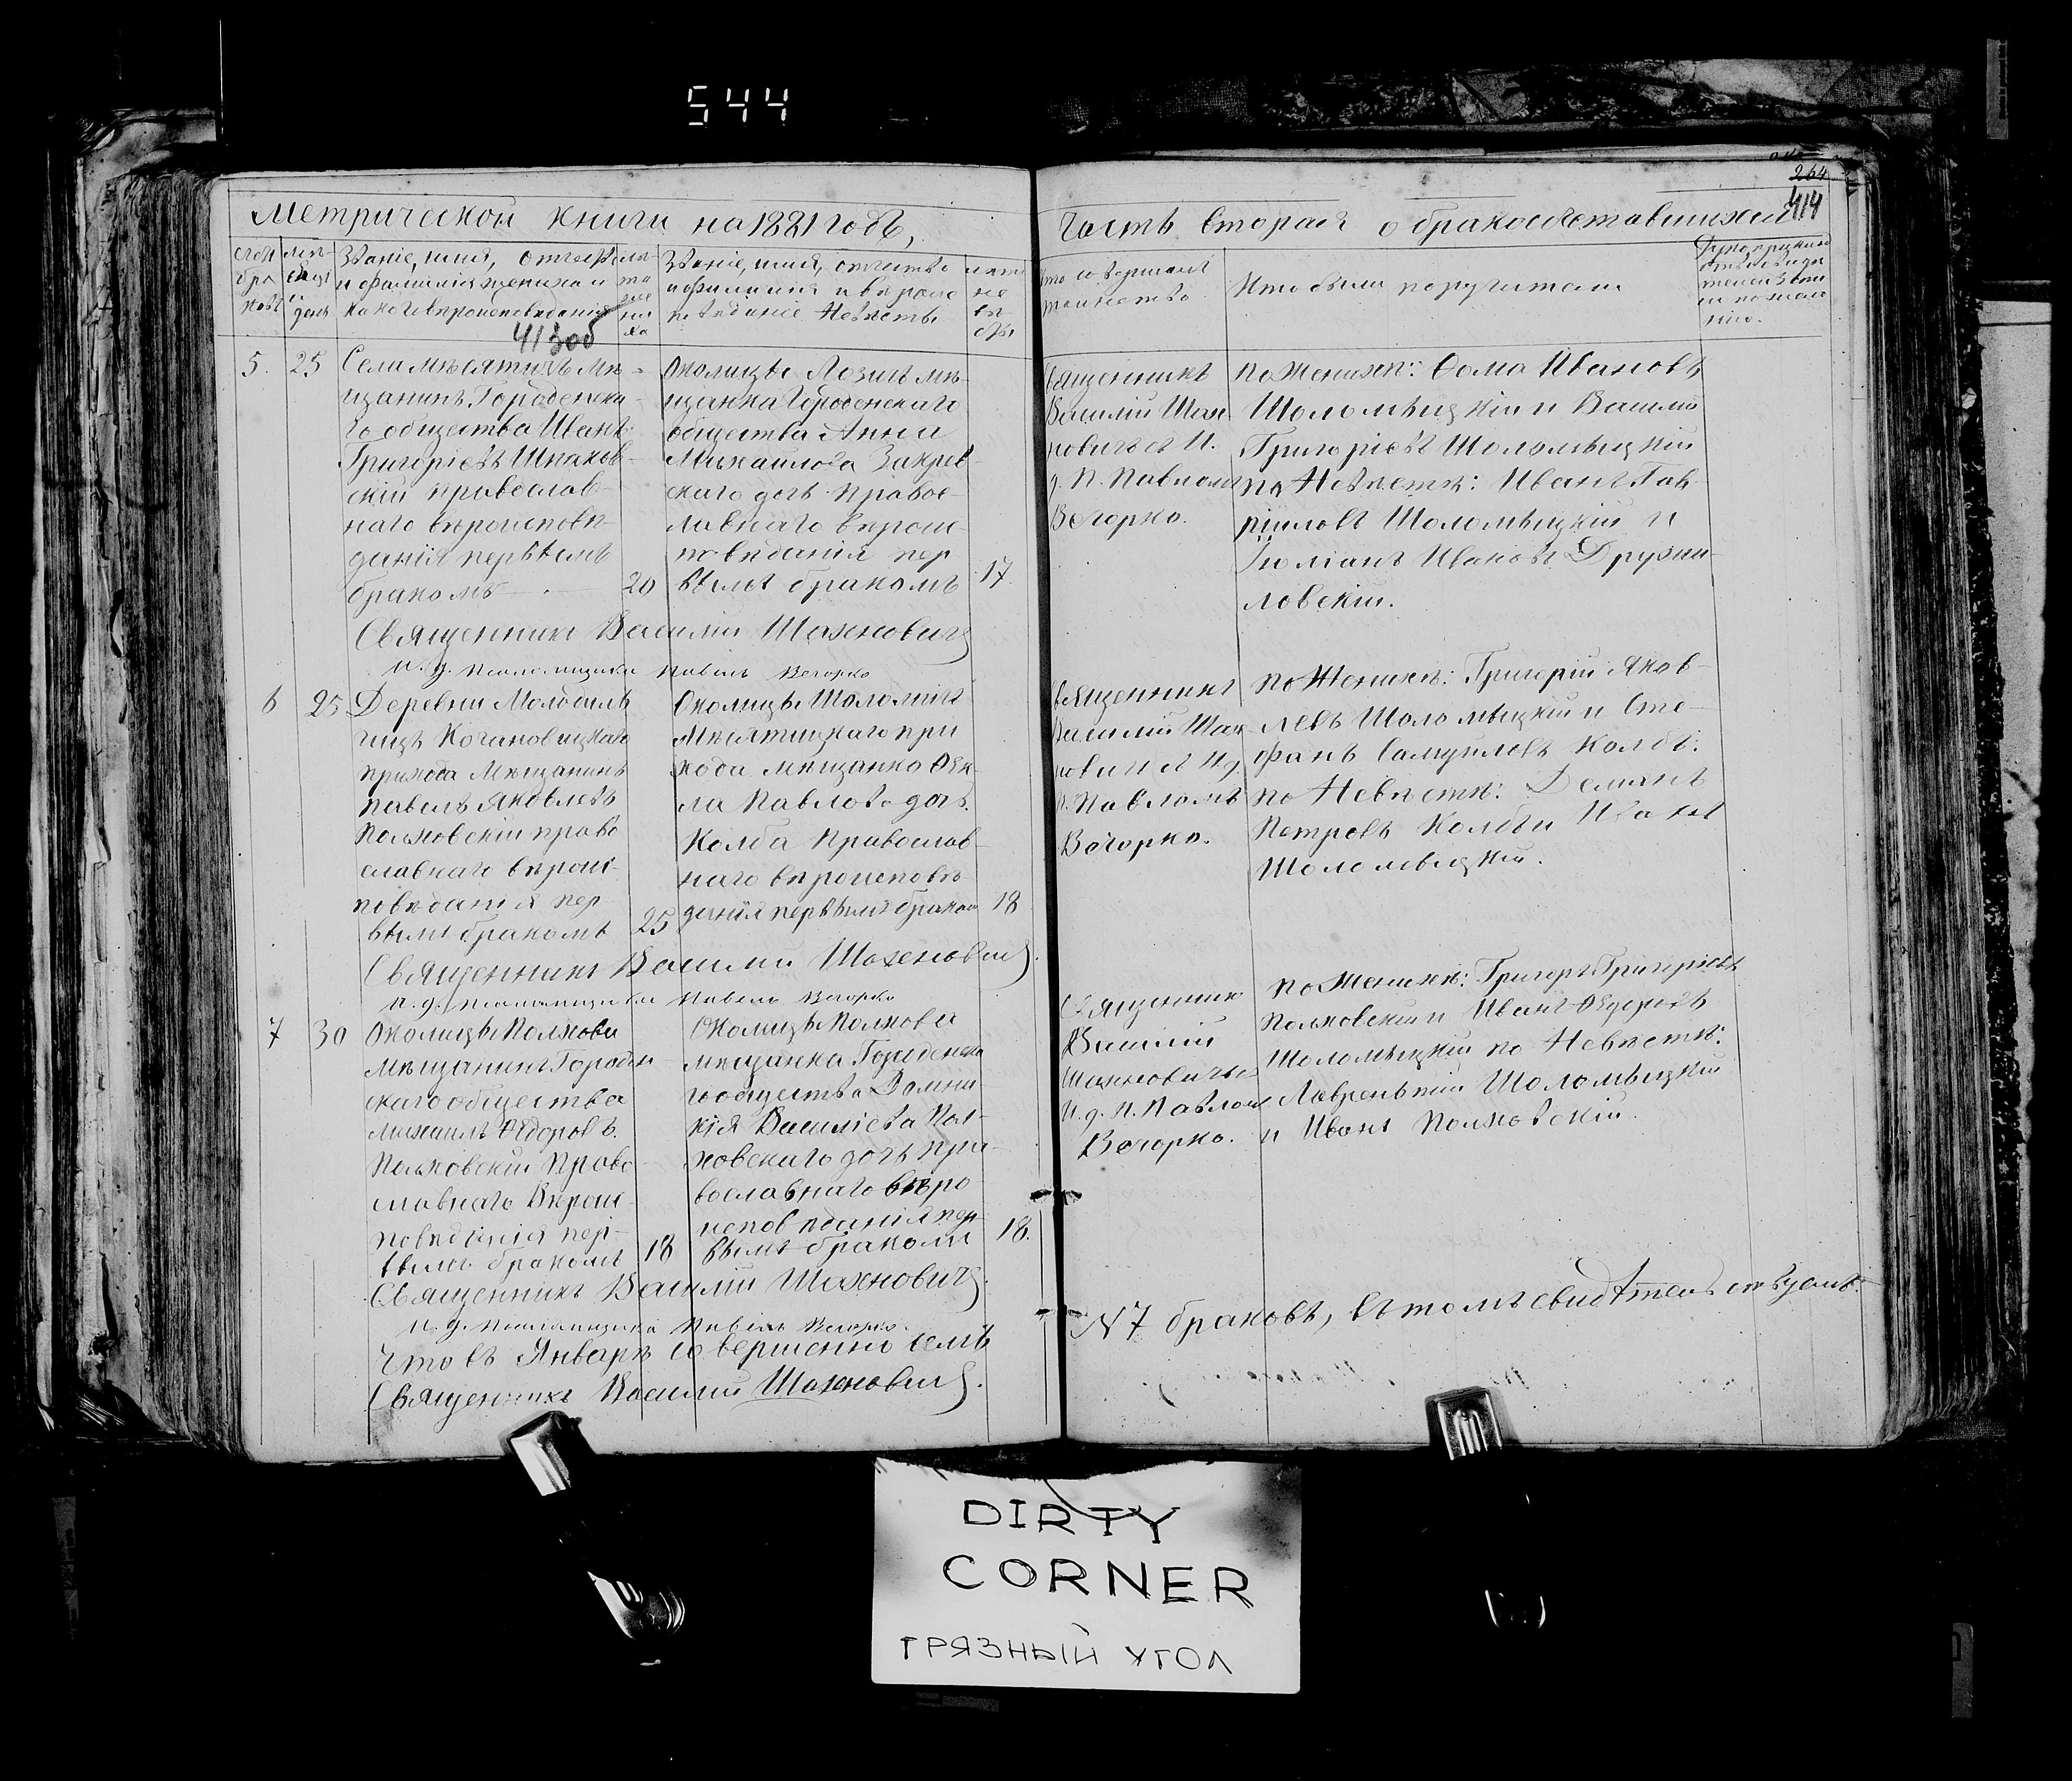 544
264
414
Метрической книги на 1881 годъ,
Часть вторая о бракосочетавшихся
Званіе, имя, отчество
и фамилія жениха и
какого вѣроисповѣданія
413 об
лѣ
та
же
ни
ха
Званіе, имя, отчество
и фамилія и вѣроис
повѣданіе Невѣсты
лѣта
не
вѣ
сты
Кто совершалъ
таинство
Кто были поручители
5. 25
Села Мѣсятичъ мѣ-
щанинъ Городенска-
го общества Иванъ
Григоріевъ Шпаков-
скій православ-
наго вѣроисповѣ-
данія первымъ
бракомъ 20
Околицы Лозичъ мѣ-
щанка Городенскаго
общества Анна
Михайлова Закрев-
скаго дочь правос-
лавнаго вѣроис-
повѣданія пер
вымъ бракомъ 17
Священникъ
Василій Шах
новичъ съ И.
д. П. Павломъ
Вечорко.
по Женихѣ: Ѳома Ивановъ
Шоломыцкій и Василій
Григоріевъ Шоломыцкій
по Невѣстѣ: Иванъ Гав
рииловъ Шоломыцкій и
Іюліанъ Ивановъ Дружи-
ловскій.
Священникъ Василій Шахновичъ
И. д. Псаломщика Павелъ Вечорко
6 25
Деревни Молодиль
чицъ Кочановицкаго
прихода Мѣщанинъ
Павелъ Яковлевъ
Полховскій право
славнаго вѣроис-
повѣданія пер
вымъ бракомъ 25
Околицы Шоломичъ
Мѣсятицкаго при
хода мѣщанка Ѳек-
ла Павлова дочь
Колба Православ-
наго вѣроисповѣ-
данія первымъ бракомъ 18
Священникъ
Василій Шах
новичъ съ И. д.
П. Павломъ
Вечорко.
по Женихѣ: Григорій Яков-
левъ Шоломыцкій и Сте-
фанъ Самуиловъ Колбъ.
по Невѣстѣ: Деміанъ
Петровъ Колбъ и Иванъ
Шоломыцкій.
Священникъ Василій Шахновичъ.
И. д. Псаломщика Павелъ Вечорко
7 30
Околицы Полхова
мѣщанинъ Городен
скаго общества
Михаилъ Ѳедоровъ
Полховскій Право-
славнаго Вѣроис-
повѣданія пер-
вымъ бракомъ 18
Околицы Полхова
мѣщанка Городенска
го общества Домни-
кія Василіева Пол-
ховскаго дочь пра-
вославнаго вѣро
исповѣданія пер
вымъ бракомъ 18.
Священникъ
Василій
Шахновичъ съ
И. д. П. Павломъ
Вечорко.
по Женихѣ: Григорій Григоріевъ
Полховскій и Иванъ Ѳедоровъ
Шоломыцкій по Невѣстѣ:
Лаврентій Шоломыцкій
и Иванъ Полховскій.
Священникъ Василій Шахновичъ.
И. д. Псаломщика Павелъ Вечорко.
Что въ Январѣ совершено семь
№ 7 браковъ, въ томъ свидѣтельствуемъ.
Священникъ Василій Шахновичъ.
DIRTY
CORNER
ГРЯЗНЫЙ УГОЛ